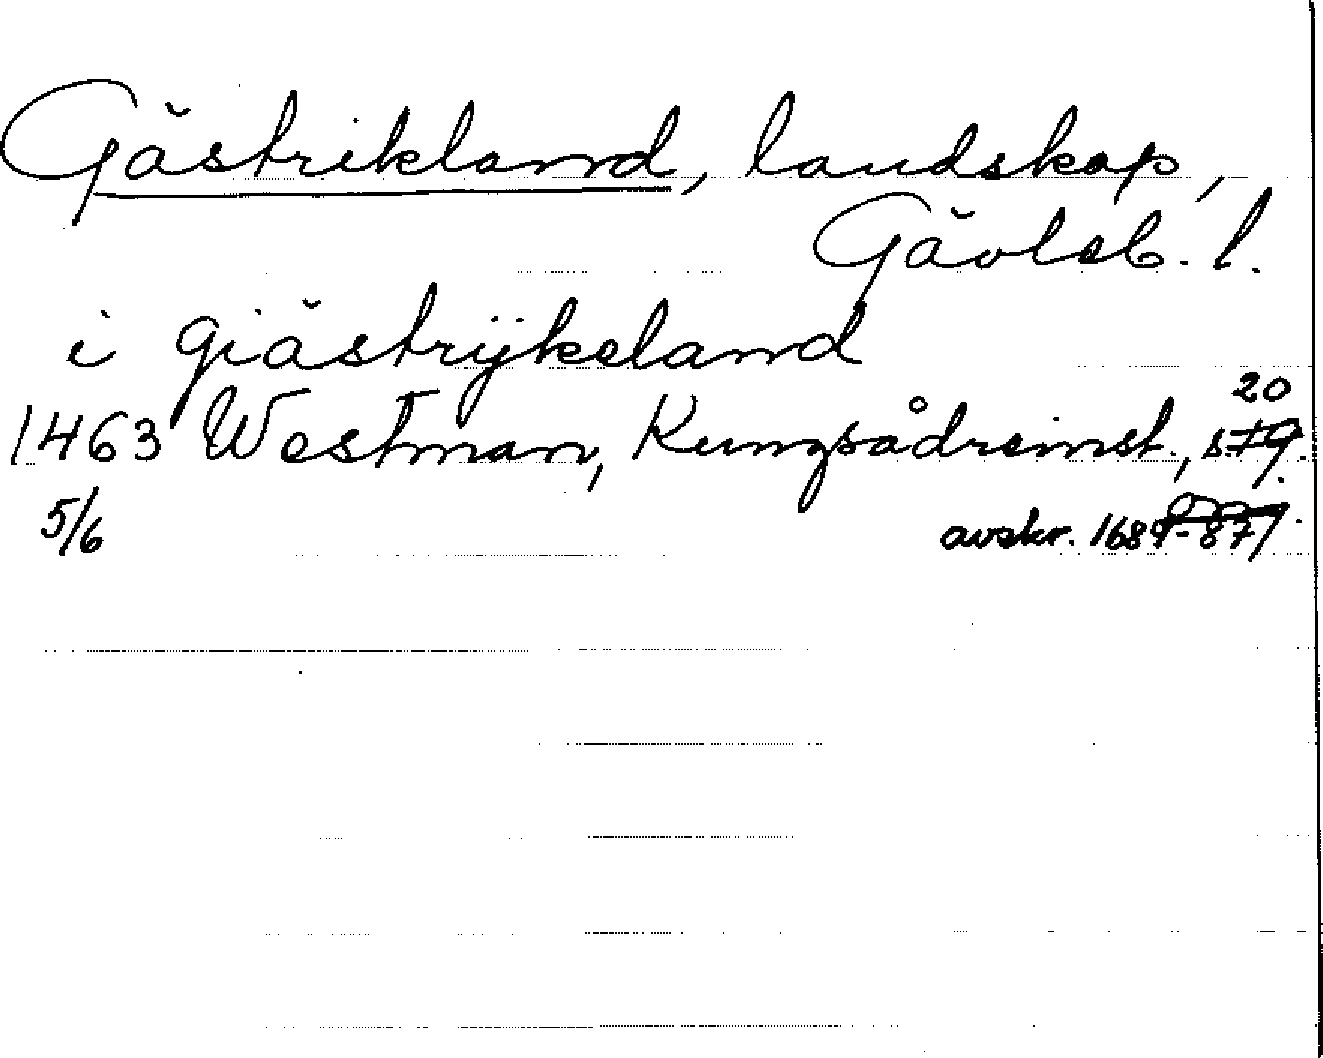 Gästrikland, landskap,
Gävleb. l.
i giästrÿkeland
20
1463 Westman, Kungsådreinst., s. 79.
5/6 avskr. 1689-